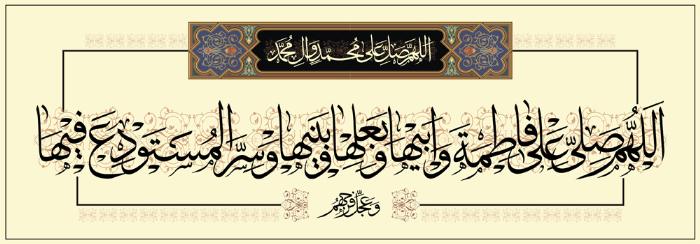 اللهم صل على محمد وآل محمد
اَللّهُمَّ صَلِّ عَلى فاطِمَةَ وَاَبيها وَبَعْلِها وَبَنيها وَسِرِّ الْمُسْتَوْدَعِ فيها
وعجل فرجهم